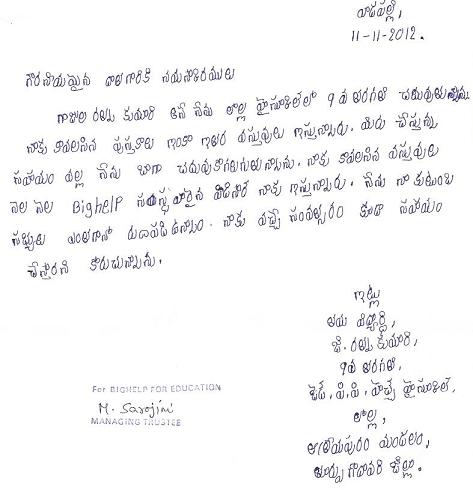 వాడపల్లి,
11-11-2012.
గౌరవనీయులైన దాతగారికి నమస్కారములు
గాజుల రత్న కుమారి అనే నేను లొల్ల హైస్కూల్‌లో 9వ తరగతి చదువుతున్నాను
నాకు కావలసిన పుస్తకాలు ఇంకా ఇతర వస్తువులు ఇస్తున్నారు. మీరు చేస్తున్న
సహాయం వల్ల నేను బాగా చదువుకోగలుగుతున్నాను. నాకు కావలసిన వస్తువులు
నెల నెల BigHelp సంస్థ వారైన నాకు ఇస్తున్నారు. నేను నా కుటుంబ
సభ్యులు ఎంతగానో రుణపడి ఉన్నాం. నాకు వచ్చే సంవత్సరం కూడా సహాయం
చేస్తారని కోరుచున్నాను.
ఇట్లు
మీ విద్యార్థి,
జి. రత్న కుమారి,
9వ తరగతి,
జెడ్. పి. పి. హెచ్చ్ హైస్కూల్,
లొల్ల,
ఆత్రేయపురం మండలం,
తూర్పు గోదావరి జిల్లా.
For BIGHELP FOR EDUCATION
M. Sarojini
MANAGING TRUSTEE